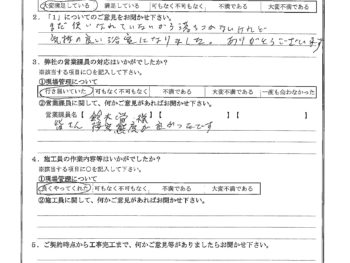 大変満足している 満足している 可もなく不可もなく 不満である 大変不満である
2.「1」についてのご意見をお聞かせ下さい。
まだ使いなれていないから落ちつかないけれど
気持の良い浴室になりました。ありがとうございます
3. 弊社の営業課員の対応はいかがでしたか?
※該当する項目に○を記入して下さい。
①現場管理について
行き届いていた 可もなく不可もなく 不満である 大変不満である 一度も会わなかった
②営業課員に関して、何かご意見があればお聞かせ下さい。
営業課員名【 鈴木 様 】【 】【 】
皆さん 態度が良かったです
4. 施工員の作業内容等はいかがでしたか?
※該当する項目に○を記入して下さい。
①現場管理について
良くやってくれた 可もなく不可もなく 不満である 大変不満である
②施工員に関して、何かご意見があればお聞かせ下さい。
5. ご契約時点から工事完工まで、何かご意見等がありましたらお聞かせ下さい。